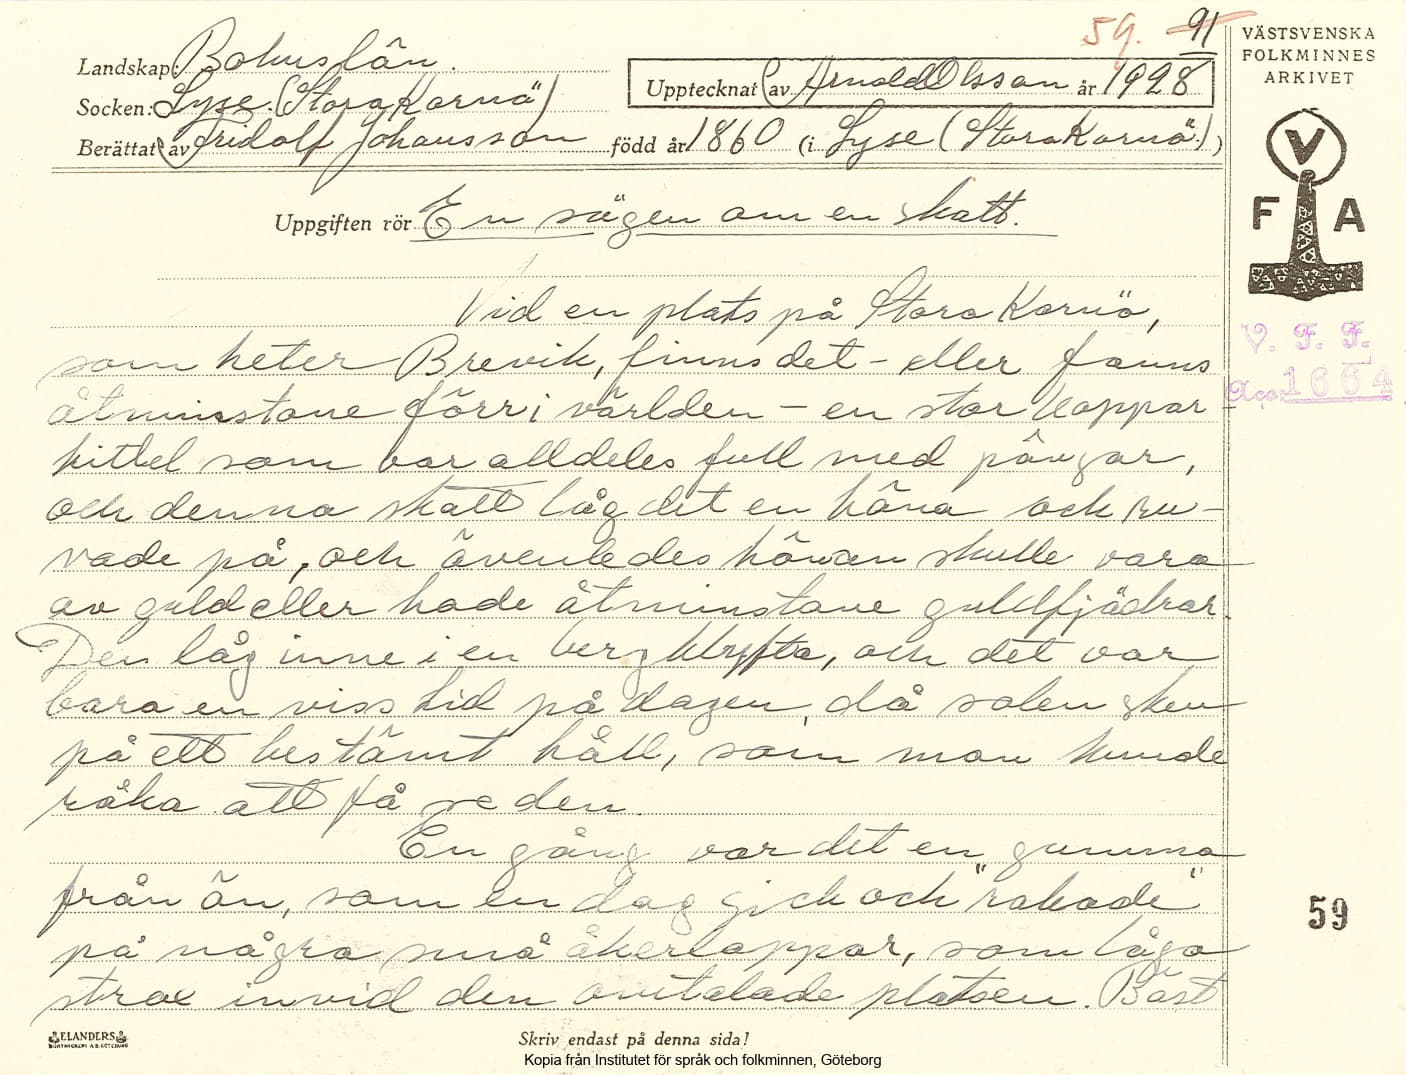 59. 91
VÄSTSVENSKA
FOLKMINNES
ARKIVET
Landskap: Bohuslän.
Upptecknat av Arnold Olsson år 1928
Socken: Lyse. (Stora Kornö)
Berättat av Fridolf Johansson född år 1860 (i Lyse (Stora Kornö.) )
V
F A
Uppgiften rör En sägen om en skatt.
Vid en plats på Stora Kornö,
som heter Brevik, finns det - eller fanns
åtminstone förr i världen - en stor koppar-
kittel som var alldeles full med pängar,
och denna skatt låg det en höna och ru-
vade på, och ävenledes hönan skulle vara
av guld eller hade åtminstone guldfjädrar.
Den låg inne i en bergklyfta, och det var
bara en viss tid på dagen, då solen sken
på ett bestämt håll, som man kunde
råka att få se den.
En gång var det en gumma
från ön, som en dag gick och "rakade"
på några små åkerlappar, som låga
strax invid den omtalade platsen. Bäst
V. F. F.
Acc: 1664
59
ELANDERS
BOKTRYCKERI A.B. GÖTEBORG
Skriv endast på denna sida!
Kopia från Institutet för språk och folkminnen, Göteborg